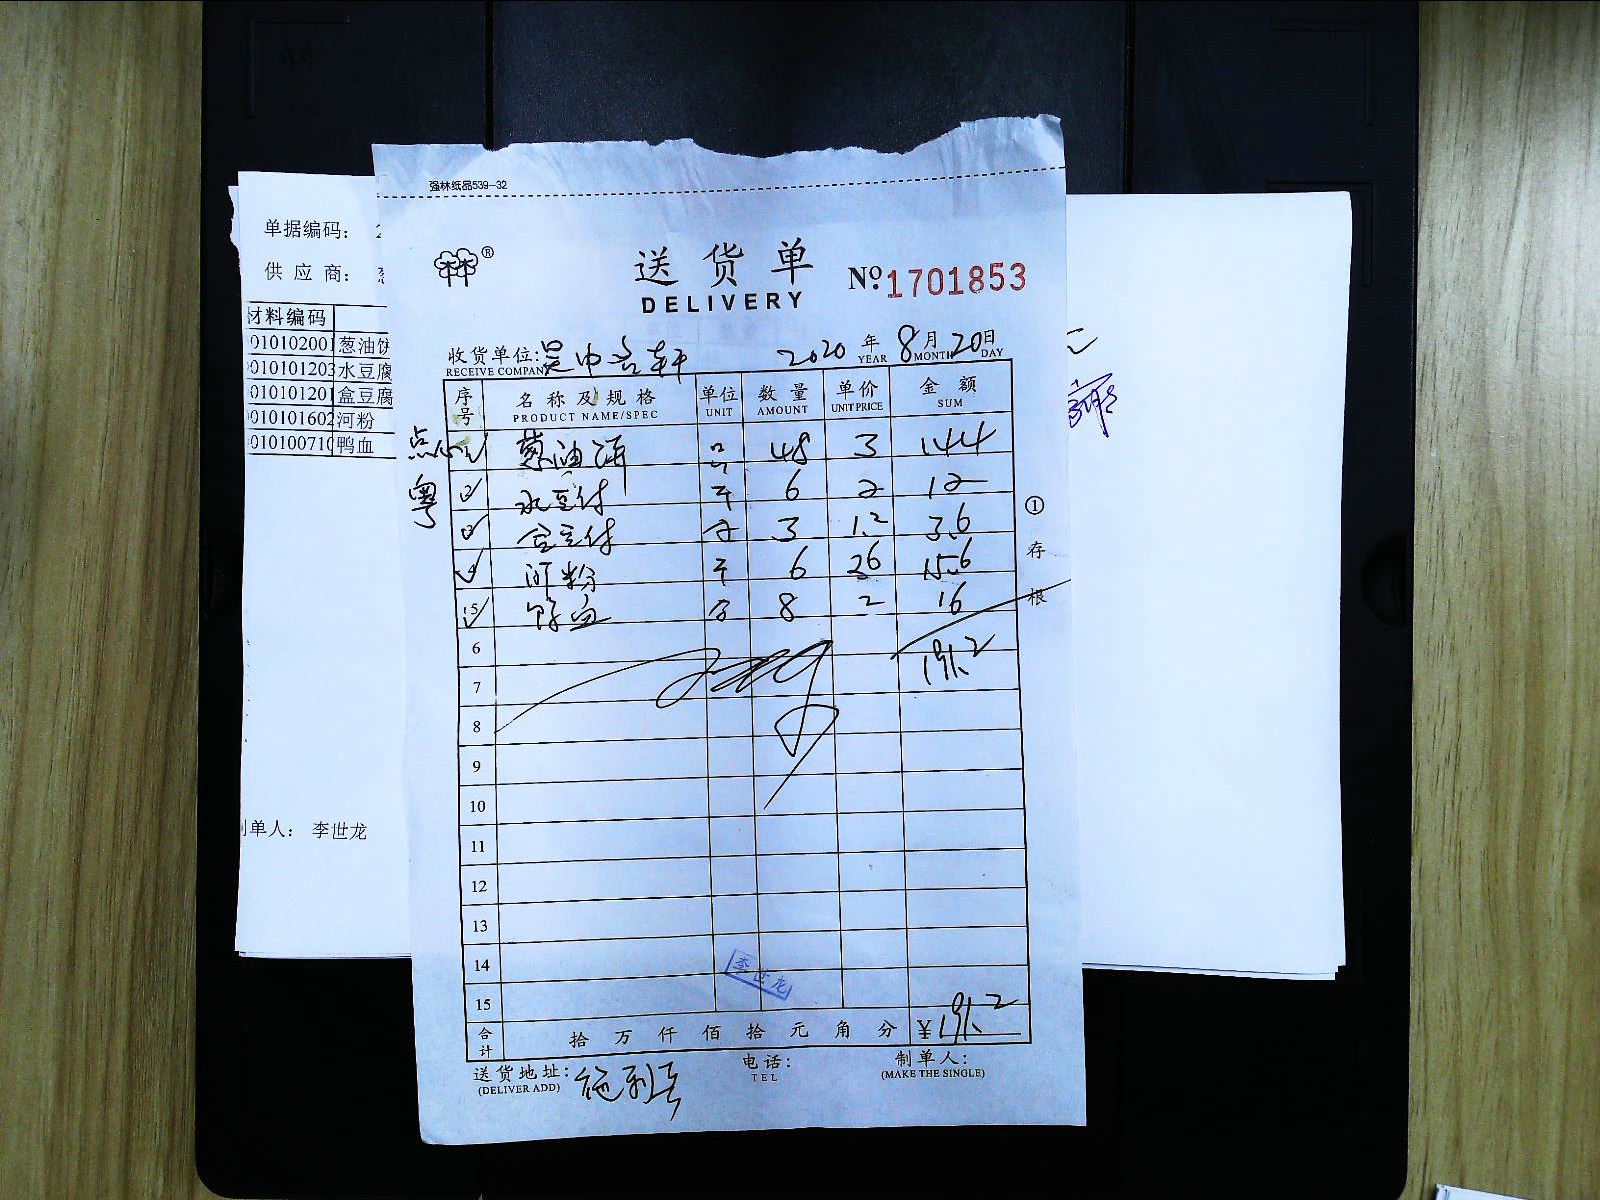 强林纸品539-32
单据编码:
供应商:
材料编码
010102001 葱油饼
010101203 水豆腐
010101201 盒豆腐
010101602 河粉
0101010071 鸭血
制单人: 李世龙
送货单
DELIVERY
№ 1701853
收货单位: 吴中客轩 2020 年 8 月 20 日
RECEIVE COMPANY YEAR MONTH DAY
序号 名称及规格 单位 数量 单价 金额
PRODUCT NAME/SPEC UNIT AMOUNT UNIT PRICE SUM
点心 葱油饼 48 3 144
粤
2 水豆付 6 2 12
3 合豆付 3 1.2 3.6
4 河粉 6 2.6 15.6
5 鸭血 8 2 16
6 191.2
7
8
9
10
11
12
13
14
15
李世龙
合计 拾 万 仟 佰 拾 元 角 分 ¥191.2
送货地址: 电话: 制单人:
(DELIVER ADD) TEL (MAKE THE SINGLE)
①存根